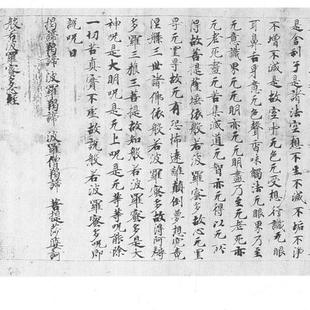 是舍利子是諸法空想不生不滅不垢不淨
不增不滅是故空中无色无受想行識无眼
耳鼻舌身意无色聲香味觸法无眼界乃至
无意識界无无明亦无无明盡乃至无老死亦
无老死盡无苦集滅道无智亦无得以无所
得故菩提薩埵依般若波羅蜜多故心无罣
㝵无罣㝵故无有恐怖遠離顛倒夢想究竟
涅槃三世諸佛依般若波羅蜜多故得阿耨
多羅三藐三菩提故知般若波羅蜜多是大
神呪是大明呪是无上呪是无等等呪能除
一切苦真實不虛故說般若波羅蜜多呪即
說呪曰
揭諦揭諦 波羅揭諦 波羅僧揭諦 菩提莎婆訶
般若波羅蜜多心經